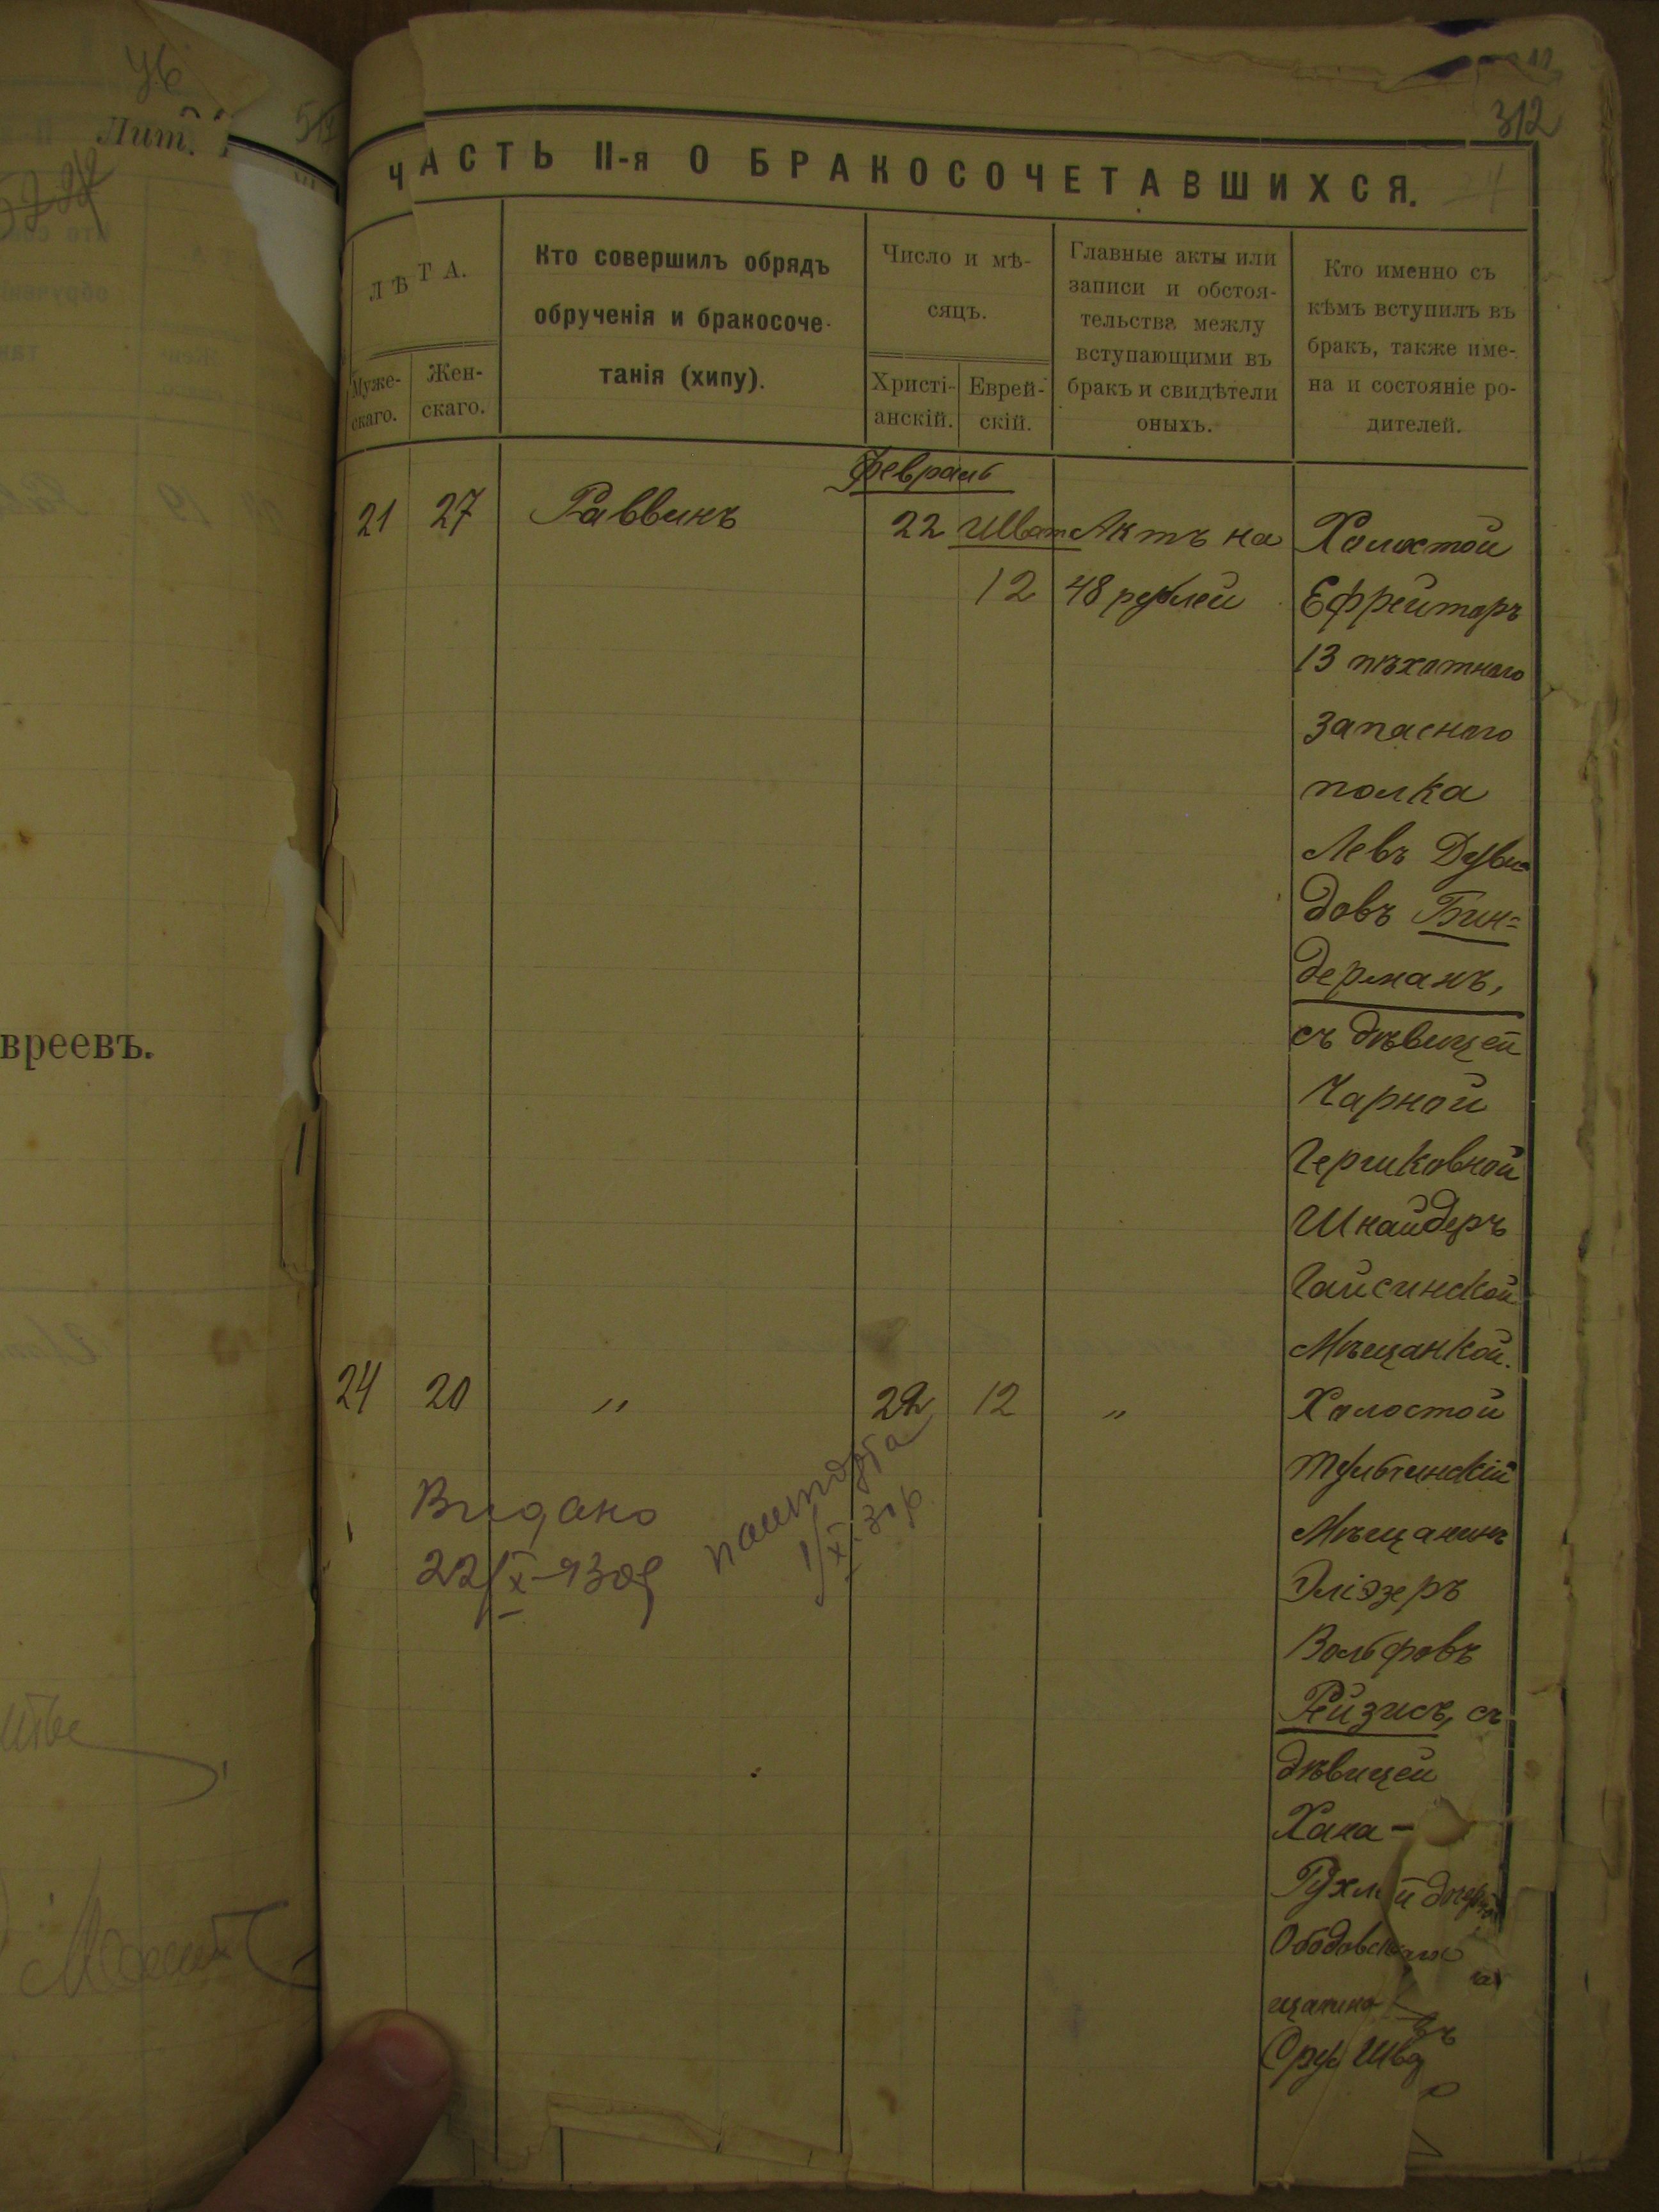 46
Лит.
312
ЧАСТЬ II-я О БРАКОСОЧЕТАВШИХСЯ.
ЛѢТА.
Муже-
скаго.
Жен-
скаго.
Кто совершилъ обрядъ
обрученія и бракосоче-
танія (хипу).
Число и мѣ-
сяцъ.
Христі-
анскій.
Еврей-
скій.
Главные акты или
записи и обстоя-
тельства межлу
вступающими въ
бракъ и свидѣтели
оныхъ.
Кто именно съ
кѣмъ вступилъ въ
бракъ, также име-
на и состояніе ро-
дителей.
Февраль
21 27 Раввинъ 22 Шват Актъ на Холостой
12 48 рублей Ефрейторъ
13 пѣхотнаго
запаснаго
полка
Левъ Дуви-
довъ Бин-
дерманъ,
съ дѣвицей
Чарной
Гершковной
Шнайдеръ
Гайсинской
Мѣщанкой.
24 20 " 22 12 " Холостой
Тульчинскій
Мѣщанинъ
Эліэзеръ
Вольфовъ
Рейзисъ, съ
дѣвицей
Хана-
Рухлей дочерью
Ободовскаго
щанина
Сруль
Видано
22/X-930р
пашпорта
1/XI.30р.
вреевъ.